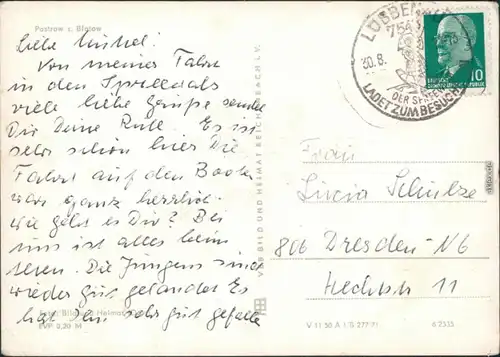 Pastrow u. Blatow
Liebe Muttel!
Von meiner Fahrt
in den Spreewald
viele liebe Grüße sendet
Dir Deine Ruth. Es ist
sehr schön hier Die
Fahrt auf den Booten
war ganz herrlich.
wie geht es Dir? Bei
uns ist alles beim
Die Jungens sind
wieder gut gelandet Es
hat sehr gut gefalle
Foto: Bild und Heimat
EVP 0,20 M
VEB BILD UND HEIMAT REICHENBACH I. V.
LÜBBEN
754
30.8.
LADET ZUM BESUCH
DEUTSCHE
DEMOKRATISCHE REPUBLIK
10
Frau
Lucia Schulze
806 Dresden-N6
Hechtstr 11
V 11 50 A 1/B 277/71